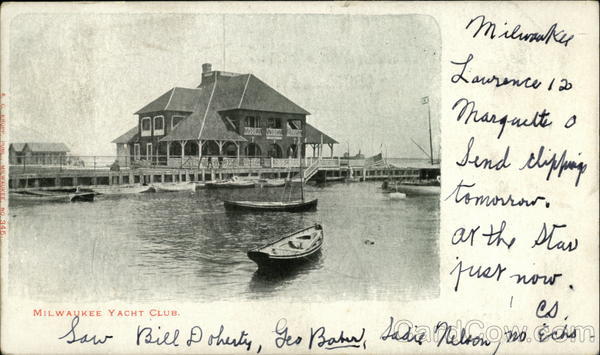 Milwaukee
Lawrence 12
Marquette 0
Send clippings
tomorrow.
at the Star
just now.
CS.
MILWAUKEE YACHT CLUB.
Saw Bill Doherty, Geo Baker, Sadie Nelson, no Echo.
CardCow.com
NO. 345.